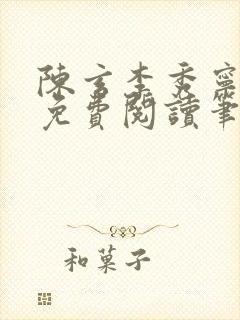 陳玄李秀寧
免費閱讀筆
和菓子